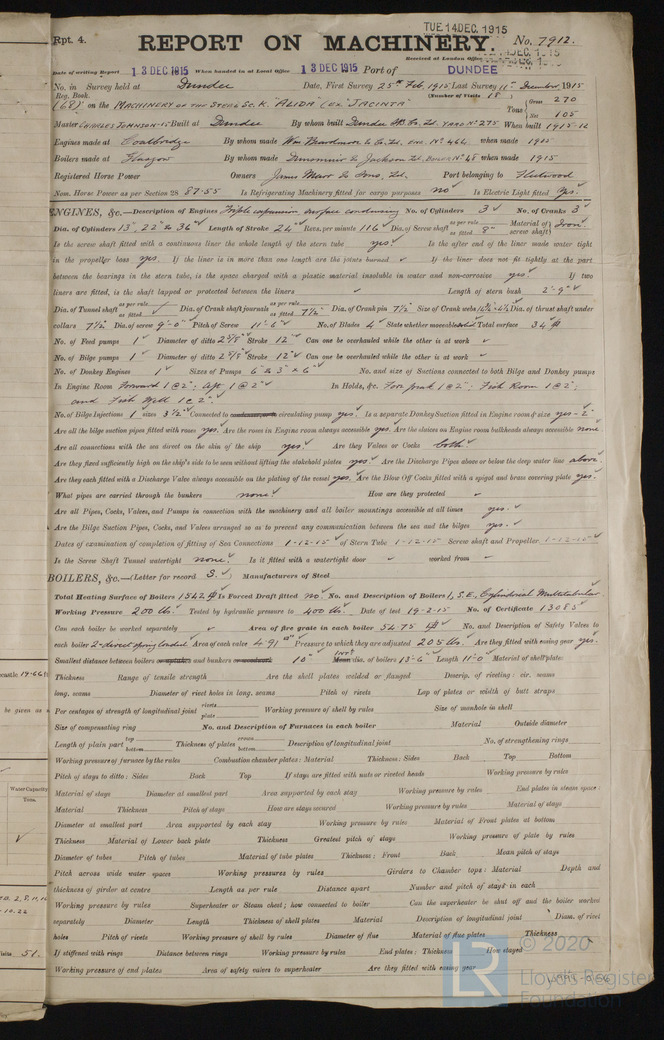 TUE. 14 DEC. 1915
Rpt. 4.
REPORT ON MACHINERY.
No. 7912.
Received at London Office
Date of writing Report 13 DEC 1915 When handed in at Local Office 13 DEC 1915 Port of DUNDEE
No. in Survey held at Dundee Date, First Survey 25th Feb, 1915 Last Survey 11th December 1915
Reg. Book. (Number of Visits 18)
(68) on the MACHINERY OF THE STEEL SC. K. "ALIDA" (EX "JACINTA")
Tons Gross 270
Net 105
Master CHARLES JOHNSON-15 Built at Dundee By whom built Dundee S.B. Co. Ld. YARD No 275 When built 1915-12
Engines made at Coatbridge By whom made Wm Beardmore & Co. Ld. ENG. No 464 when made 1915
Boilers made at Glasgow By whom made Dunsmuir & Jackson Ld. BOILER No 48 when made 1915
Registered Horse Power Owners James Marr & Sons, Ld. Port belonging to Fleetwood
Nom. Horse Power as per Section 28 87.55 Is Refrigerating Machinery fitted for cargo purposes No Is Electric Light fitted Yes.
ENGINES, &c.—Description of Engines Triple expansion surface condensing No. of Cylinders 3 No. of Cranks 3
Dia. of Cylinders 13", 22" & 36" Length of Stroke 24" Revs. per minute 116 Dia. of Screw shaft as per rule as fitted 8" Material of screw shaft Iron
Is the screw shaft fitted with a continuous liner the whole length of the stern tube yes. Is the after end of the liner made water tight
in the propeller boss yes. If the liner is in more than one length are the joints burned ✓ If the liner does not fit tightly at the part
between the bearings in the stern tube, is the space charged with a plastic material insoluble in water and non-corrosive yes. If two
liners are fitted, is the shaft lapped or protected between the liners Length of stern bush 2'-9"
Dia. of Tunnel shaft as per rule as fitted Dia. of Crank shaft journals as per rule as fitted 7½" Dia. of Crank pin 7½" Size of Crank webs Dia. of thrust shaft under
collars 7½" Dia. of screw 9'-0" Pitch of Screw 11'-6" No. of Blades 4 State whether moveable Total surface 34
No. of Feed pumps 1 Diameter of ditto 2⅝" Stroke 12" Can one be overhauled while the other is at work ✓
No. of Bilge pumps 1 Diameter of ditto 2⅝" Stroke 12" Can one be overhauled while the other is at work ✓
No. of Donkey Engines 1 Sizes of Pumps 6" & 3" x 6" No. and size of Suctions connected to both Bilge and Donkey pumps
In Engine Room Forward 1 @ 2"; Aft, 1 @ 2" In Holds, &c. Fore peak 1 @ 2"; Fish Room 1 @ 2";
and Fish Well 1 @ 2".
No. of Bilge Injections 1 sizes 3½" Connected to circulating pump yes. Is a separate Donkey Suction fitted in Engine room & size yes - 2"
Are all the bilge suction pipes fitted with roses yes. Are the roses in Engine room always accessible yes. Are the sluices on Engine room bulkheads always accessible none
Are all connections with the sea direct on the skin of the ship yes. Are they Valves or Cocks both.
Are they fixed sufficiently high on the ship's side to be seen without lifting the stokehold plates yes. Are the Discharge Pipes above or below the deep water line above
Are they each fitted with a Discharge Valve always accessible on the plating of the vessel yes. Are the Blow Off Cocks fitted with a spigot and brass covering plate yes.
What pipes are carried through the bunkers none. How are they protected ✓
Are all Pipes, Cocks, Valves, and Pumps in connection with the machinery and all boiler mountings accessible at all times yes.
Are the Bilge Suction Pipes, Cocks, and Valves arranged so as to prevent any communication between the sea and the bilges yes.
Dates of examination of completion of fitting of Sea Connections 1-12-15 of Stern Tube 1-12-15 Screw shaft and Propeller 1-12-15
Is the Screw Shaft Tunnel watertight none. Is it fitted with a watertight door ✓ worked from ✓
BOILERS, &c.—(Letter for record S.) Manufacturers of Steel
Total Heating Surface of Boilers 1542 Is Forced Draft fitted no No. and Description of Boilers 1, S.E. Cylindrical Multitubular
Working Pressure 200 lbs. Tested by hydraulic pressure to 400 lbs. Date of test 19-2-15 No. of Certificate 13085
Can each boiler be worked separately Area of fire grate in each boiler 54.75 No. and Description of Safety Valves to
each boiler 2-direct spring loaded Area of each valve 4.91 Pressure to which they are adjusted 205 lbs. Are they fitted with easing gear yes.
Smallest distance between boilers and bunkers 10" dia. of boilers 13'-6" Length 11'-0" Material of shell plates
Thickness Range of tensile strength Are the shell plates welded or flanged Descrip. of riveting: cir. seams
long. seams Diameter of rivet holes in long. seams Pitch of rivets Lap of plates or width of butt straps
Per centages of strength of longitudinal joint rivets plate Working pressure of shell by rules Size of manhole in shell
Size of compensating ring No. and Description of Furnaces in each boiler Material Outside diameter
Length of plain part top bottom Thickness of plates crown bottom Description of longitudinal joint No. of strengthening rings
Working pressure of furnace by the rules Combustion chamber plates: Material Thickness: Sides Back Top Bottom
Pitch of stays to ditto: Sides Back Top If stays are fitted with nuts or riveted heads Working pressure by rules
Material of stays Diameter at smallest part Area supported by each stay Working pressure by rules End plates in steam space:
Material Thickness Pitch of stays How are stays secured Working pressure by rules Material of stays
Diameter at smallest part Area supported by each stay Working pressure by rules Material of Front plates at bottom
Thickness Material of Lower back plate Thickness Greatest pitch of stays Working pressure of plate by rules
Diameter of tubes Pitch of tubes Material of tube plates Thickness: Front Back Mean pitch of stays
Pitch across wide water spaces Working pressures by rules Girders to Chamber tops: Material Depth and
thickness of girder at centre Length as per rule Distance apart Number and pitch of stays in each
Working pressure by rules Superheater or Steam chest; how connected to boiler Can the superheater be shut off and the boiler worked
separately Diameter Length Thickness of shell plates Material Description of longitudinal joint Diam. of rivet
holes Pitch of rivets Working pressure of shell by rules Diameter of flue Material of flue plates Thickness
If stiffened with rings Distance between rings Working pressure by rules End plates: Thickness How stayed
Working pressure of end plates Area of safety valves to superheater Are they fitted with easing gear
Water Capacity
Tons.
51.
© 2020
Lloyd's Register
Foundation